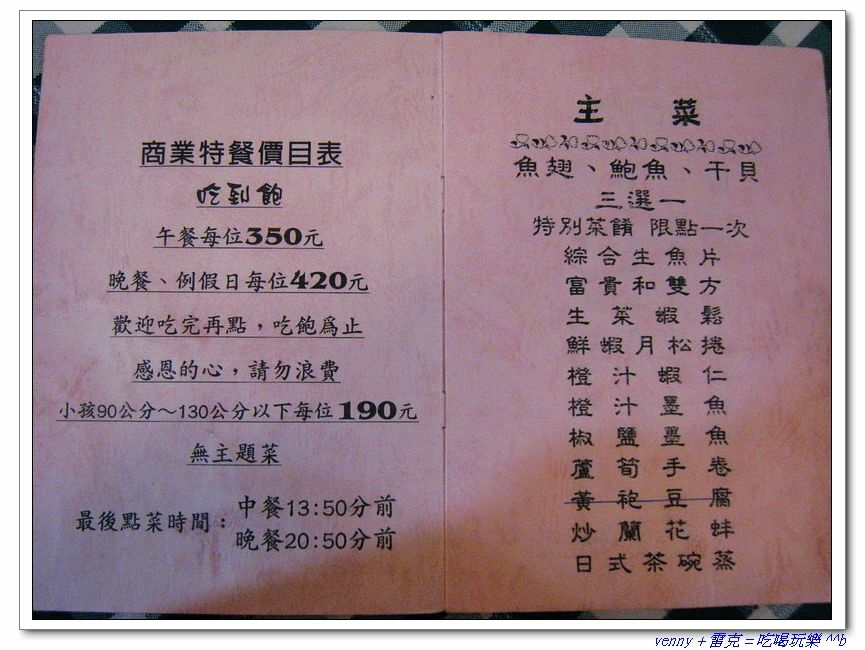 商業特餐價目表
吃到飽
午餐每位350元
晚餐、例假日每位420元
歡迎吃完再點，吃飽爲止
感恩的心，請勿浪費
小孩90公分～130公分以下每位190元
無主題菜
最後點菜時間：
中餐13:50分前
晚餐20:50分前
主菜
魚翅、鮑魚、干貝
三選一
特別菜餚 限點一次
綜合生魚片
富貴和雙方
生菜蝦鬆
鮮蝦月松捲
橙汁蝦仁
橙汁墨魚
椒鹽墨魚
蘆筍手卷
黃袍豆腐
炒蘭花蚌
日式茶碗蒸
venny + 雷克 = 吃喝玩樂 ^^b